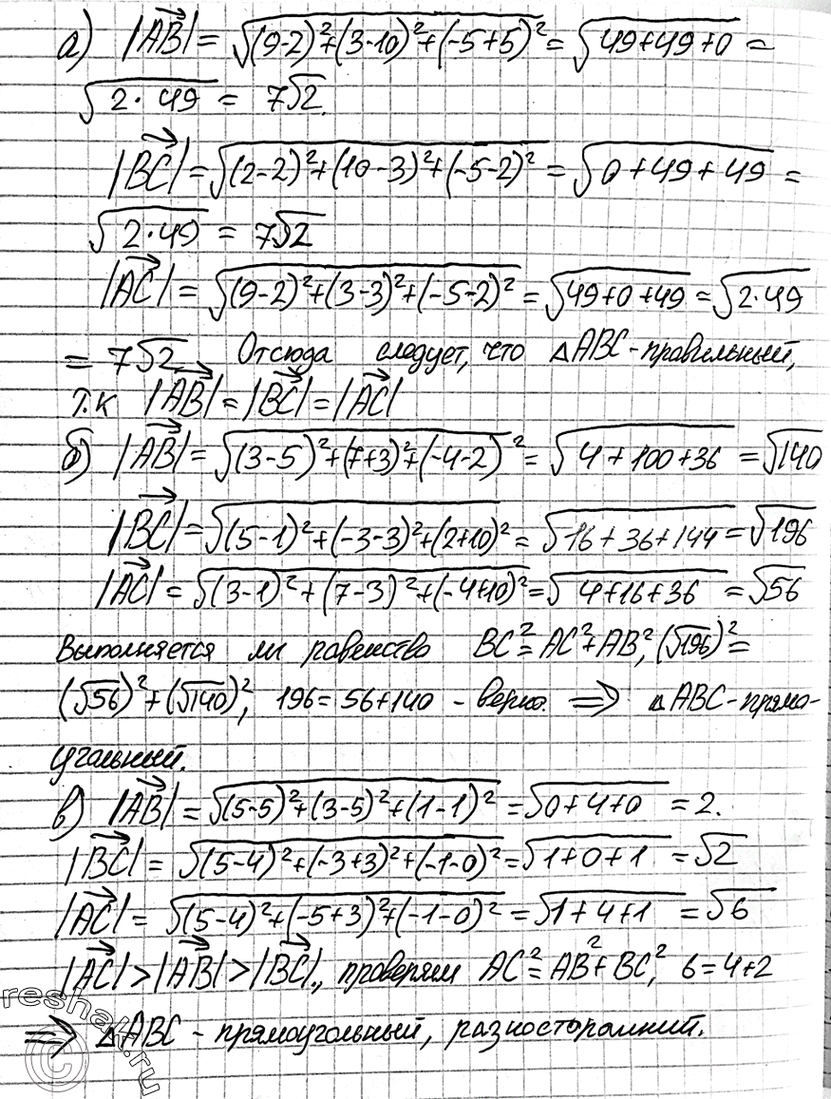 а) |AB| = √(9-2)²+(3-10)²+(-5+5)² = √49+49+0 =
√2·49 = 7√2.
|BC| = √(2-2)²+(10-3)²+(-5-2)² = √0+49+49 =
√2·49 = 7√2
|AC| = √(9-2)²+(3-3)²+(-5-2)² = √49+0+49 = √2·49
= 7√2 Отсюда следует, что △ABC-правильный,
т.к |AB| = |BC| = |AC|
б) |AB| = √(3-5)²+(7+3)²+(-4-2)² = √4+100+36 = √140
|BC| = √(5-1)²+(-3-3)²+(2+10)² = √16+36+144 = √196
|AC| = √(3-1)²+(7-3)²+(-4+10)² = √4+16+36 = √56
Выполняется ли равенство BC²=AC²+AB², (√196)²=
(√56)²+(√140)², 196=56+140 - верно. ⇒ △ABC-прямо-
угальный.
в) |AB| = √(5-5)²+(3-5)²+(1-1)² = √0+4+0 = 2.
|BC| = √(5-4)²+(-3+3)²+(-1-0)² = √1+0+1 = √2
|AC| = √(5-4)²+(-5+3)²+(-1-0)² = √1+4+1 = √6
|AC|>|AB|>|BC|., проверям AC²=AB²+BC², 6=4+2
⇒ △ABC - прямоугольный, разносторонний.
reshak.ru